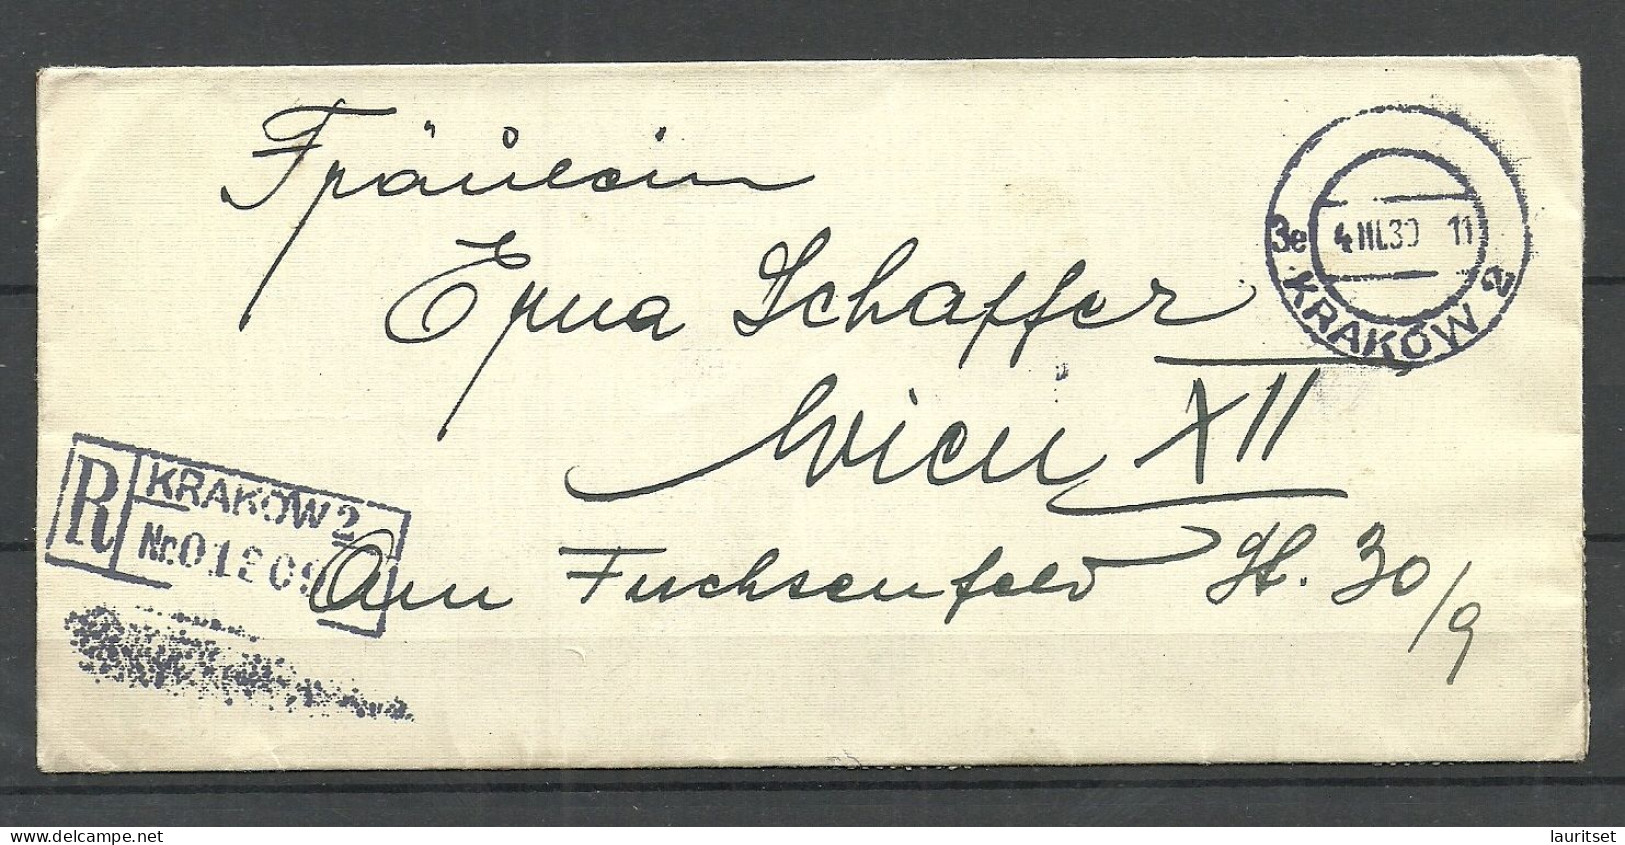 Fräulein
Erna Schaffer
Wien XII
Am Fuchsenfeld St. 30/9
3e 4 III.30 11
KRAKÓW 2
R KRAKÓW 2
Nr.
lauritset